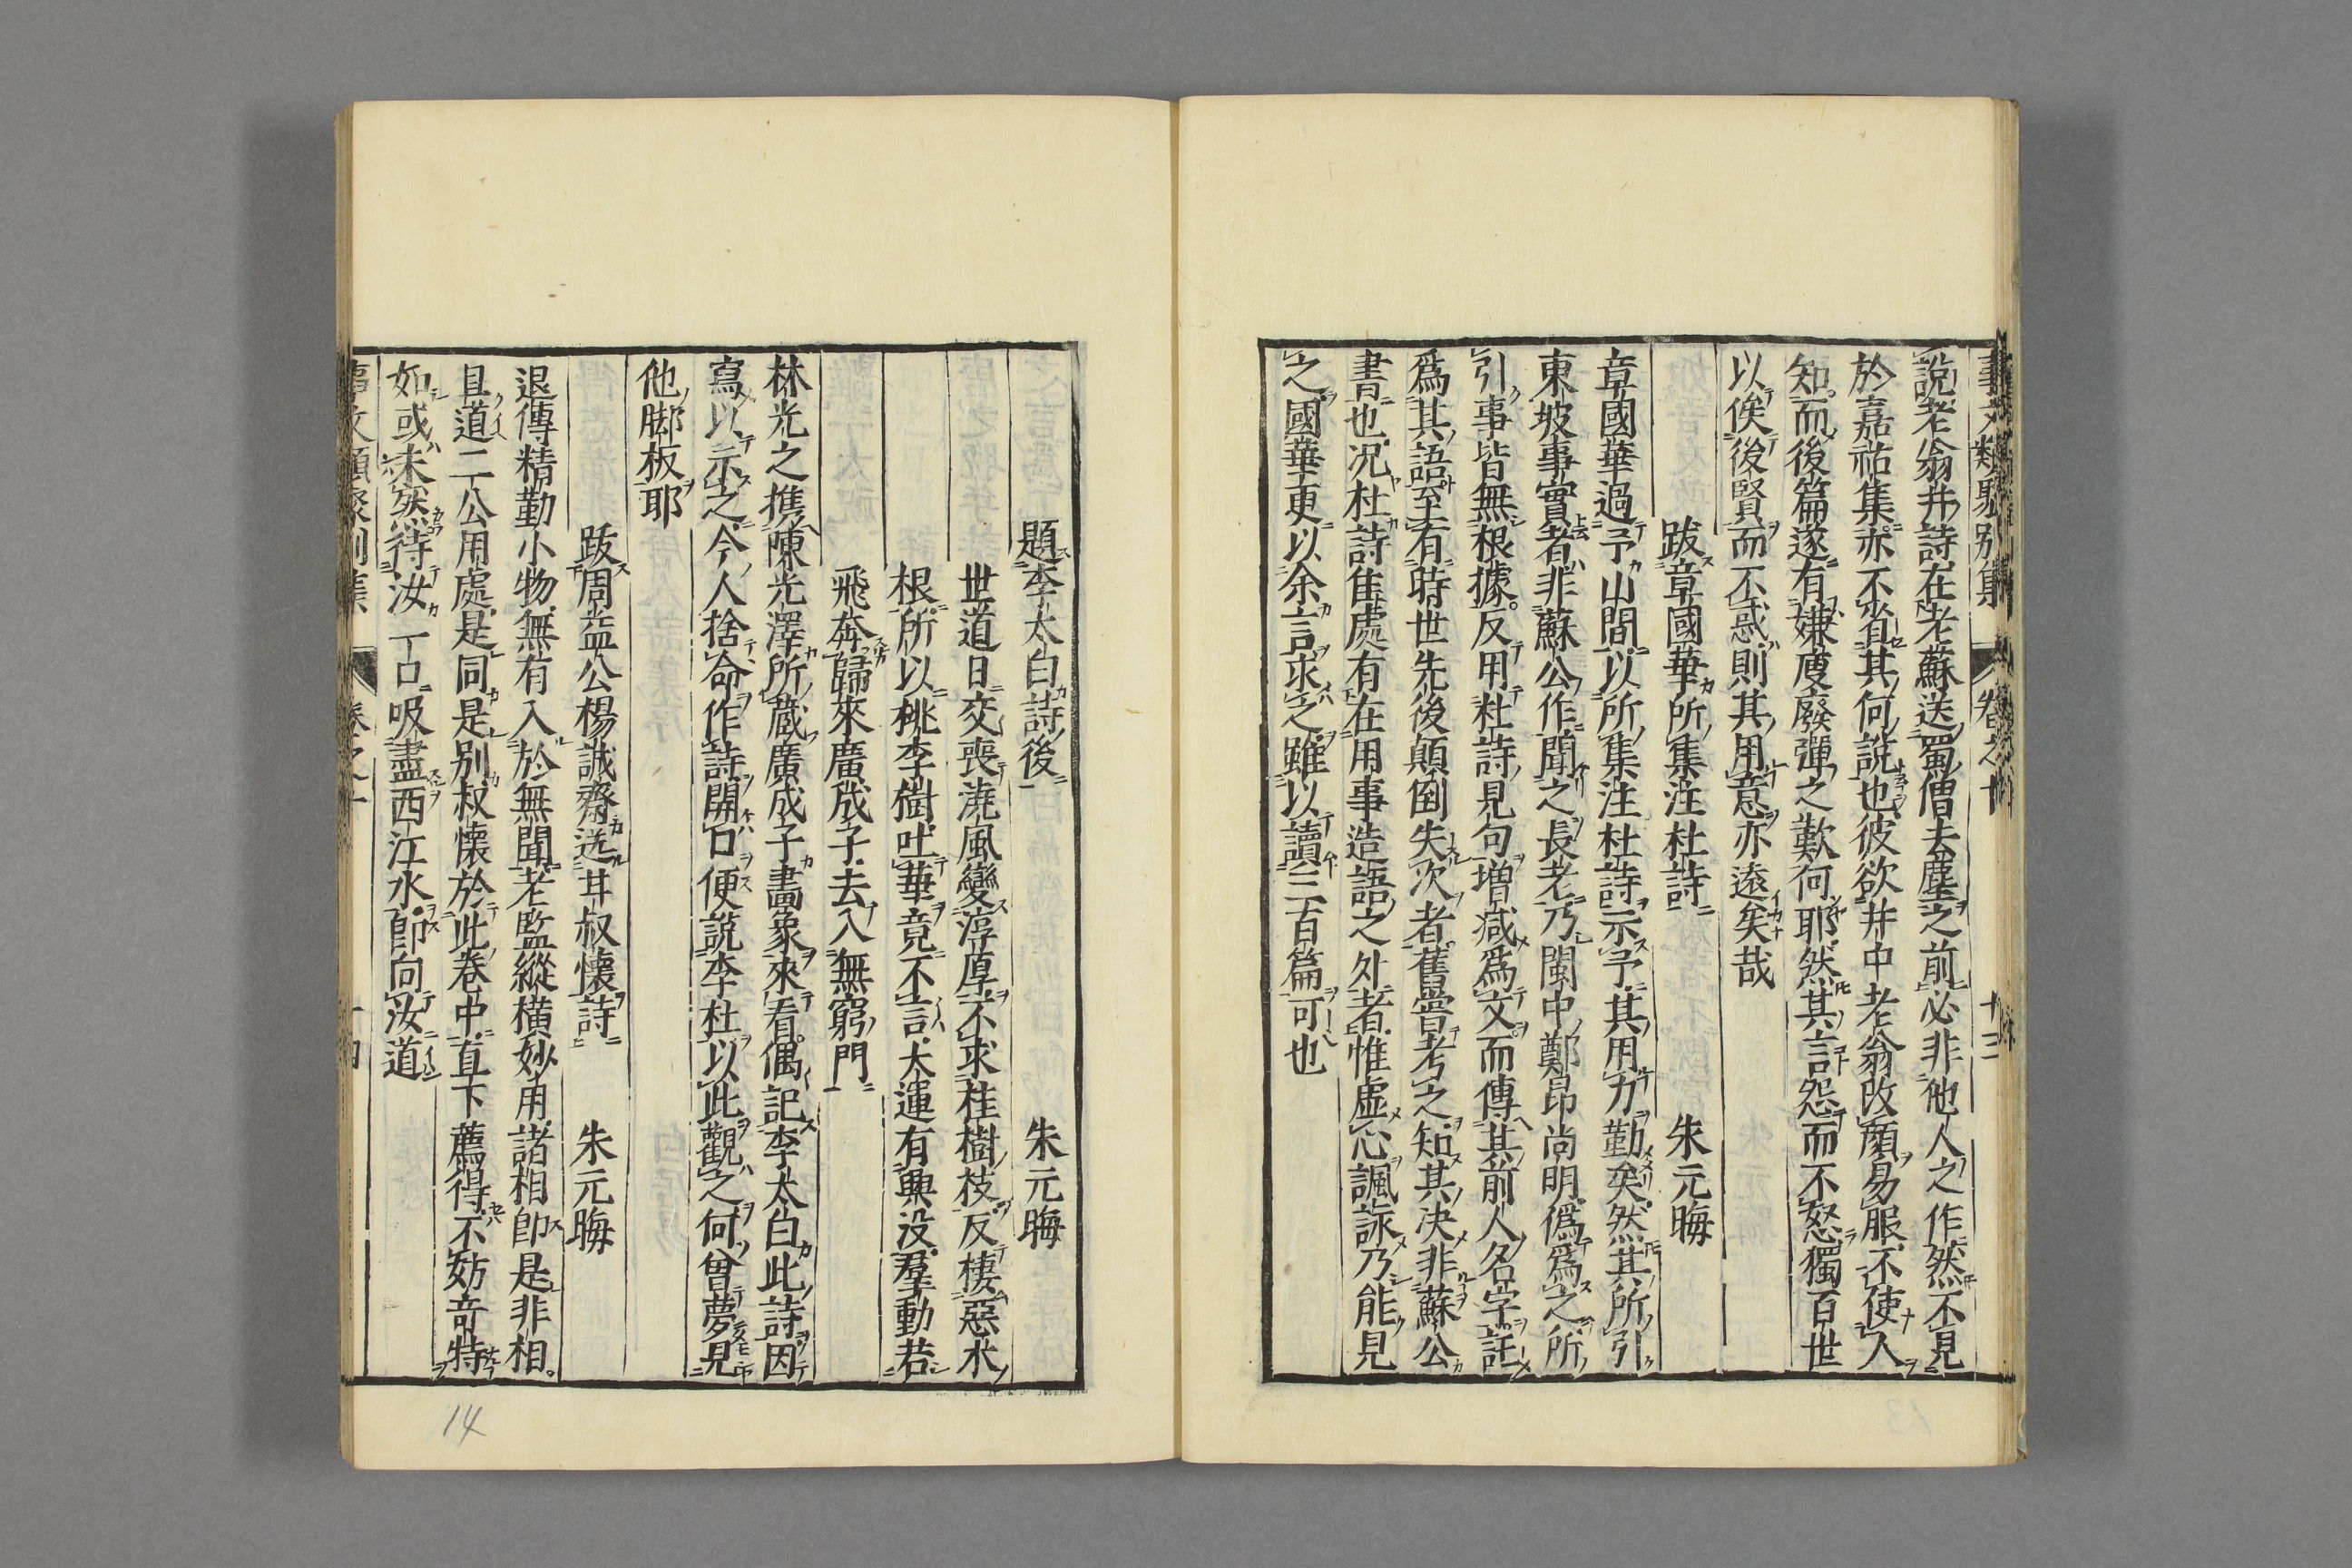 事文類聚別集 卷之十 十三
說老翁井詩在老蘇送蜀僧去塵之前必非他人之作然不見
於嘉祐集亦不省其何說也彼欲井中老翁改顏易服不使人
知而後篇遂有嫌廋廢彈之歎何耶然其言怨而不怒獨百世
以俟後賢而不惑則其用意亦遠矣哉
跋章國華所集注杜詩 朱元晦
章國華過予山間以所集注杜詩示予其用力勤矣然其所引
東坡事實者非蘇公作聞之長老乃閩中鄭昂尚明僞爲之所
引事皆無根據反用杜詩見句增減爲文而傳其前人名字託
爲其語至有時世先後顛倒失次者舊嘗考之知其決非蘇公
書也况杜詩隹處有在用事造語之外者惟虛心諷詠乃能見
之國華更以余言求之雖以讀三百篇可也
題李太白詩後 朱元晦
世道日交喪澆風變淳厚不求桂樹枝反棲惡木
根所以桃李樹吐華竟不言大運有興沒羣動若
飛奔歸來廣成子去入無窮門
林光之携陳光澤所藏廣成子畵象來看偶記李太白此詩因
寫以示之今人捨命作詩開口便說李杜以此觀之何曾夢見
他脚板耶
跋周益公楊誠齋送甘叔懷詩 朱元晦
退傳精勤小物無有入於無聞老監縱橫妙用諸相卽是非相
且道二公用處是同是別叔懷於此卷中直下薦得不妨奇特
如或未然待汝一口吸盡西江水卽向汝道
事文類聚別集 卷之十 十四
14